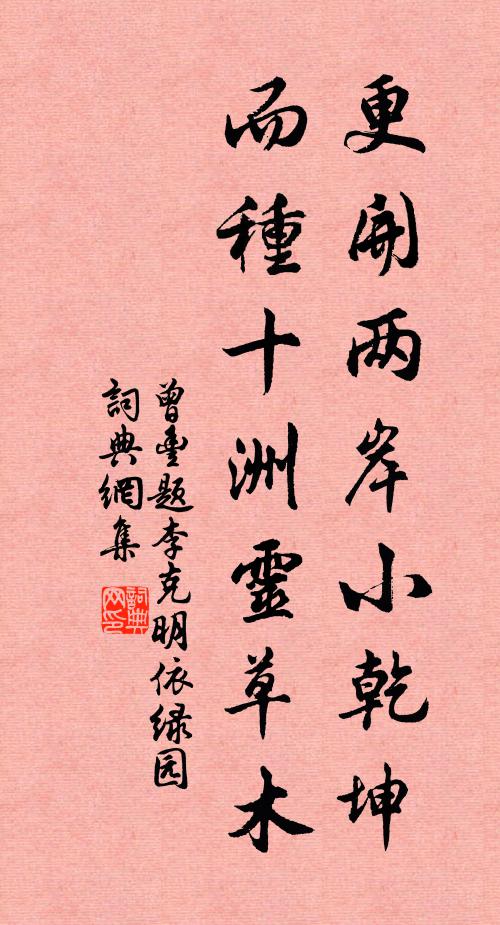 更開两岸小乾坤
而種十洲靈草木
曾豐题李克明依緑园
詞典網集
詞典网印